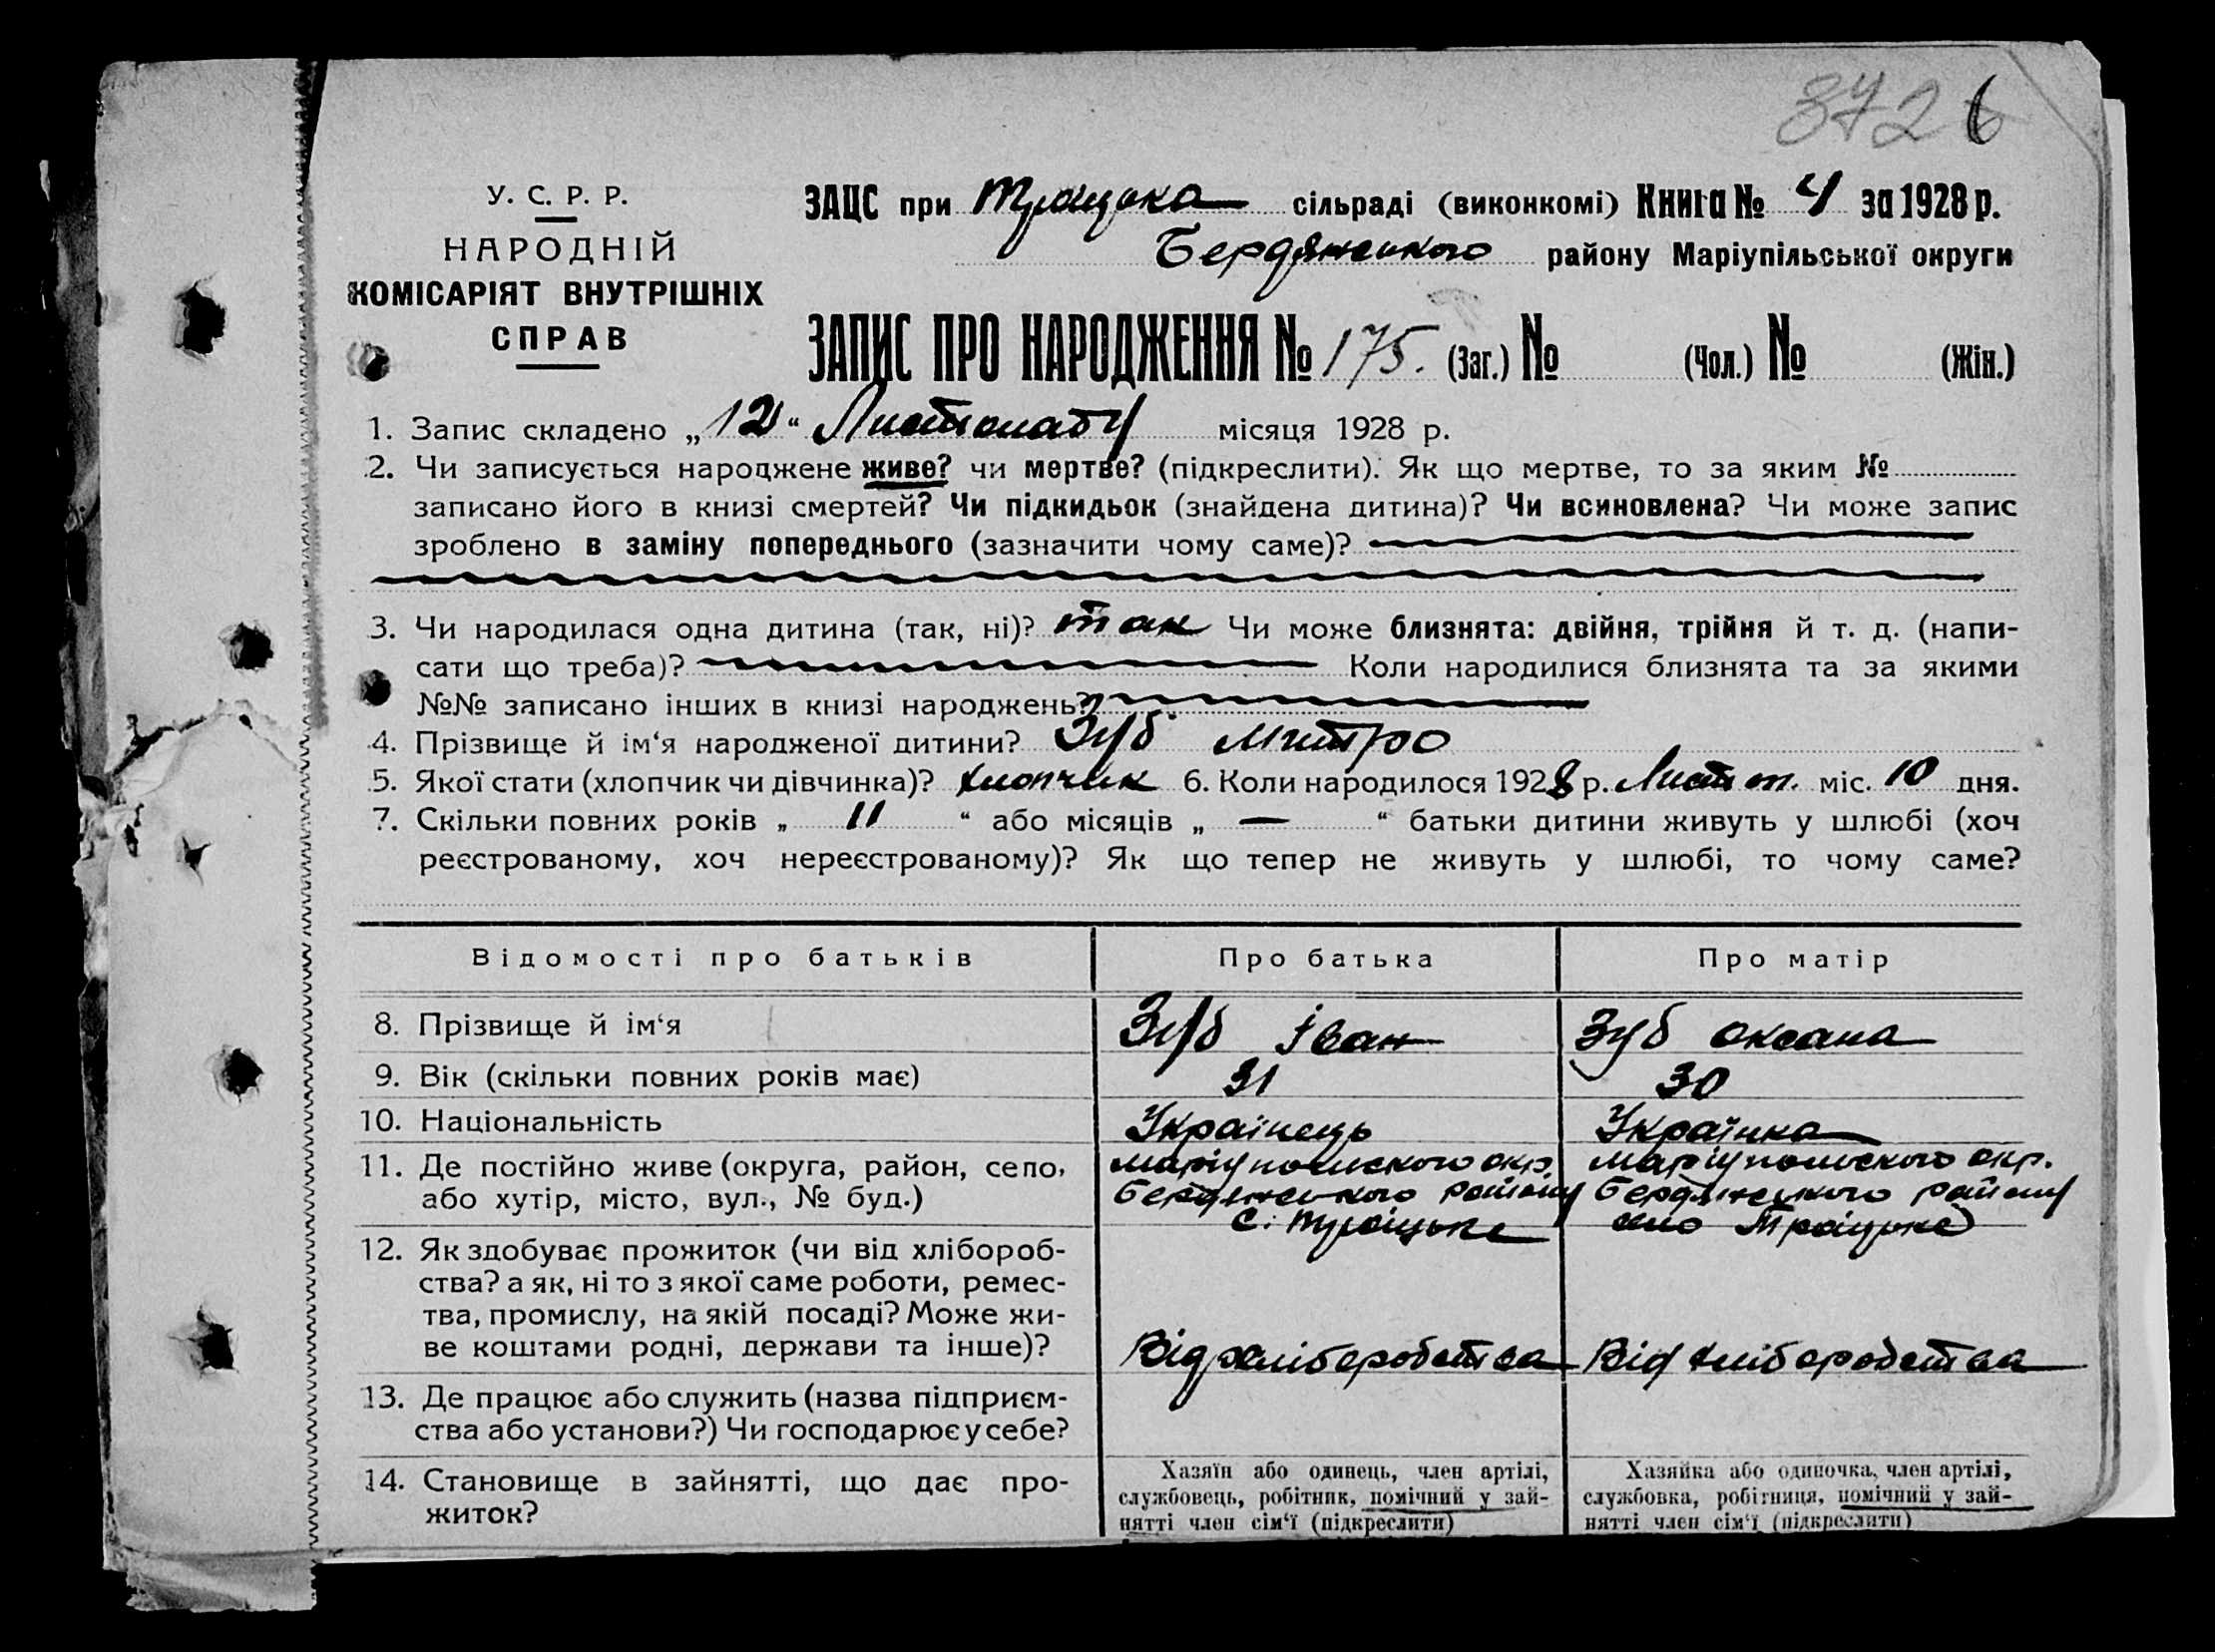 372 6
У. С. Р. Р.
НАРОДНІЙ
КОМІСАРІЯТ ВНУТРІШНІХ
СПРАВ
ЗАЦС при Троіцька сільраді (виконкомі) Книга № 4 за 1928 р.
Бердянського району Маріупільської округи
ЗАПИС ПРО НАРОДЖЕННЯ № 175. (Заг.) № (Чол.) № (Жін.)
1. Запис складено „12“ Листопаду місяця 1928 р.
2. Чи записується народжене живе? чи мертве? (підкреслити). Як що мертве, то за яким №
записано його в книзі смертей? Чи підкидьок (знайдена дитина)? Чи всиновлена? Чи може запис
зроблено в заміну попереднього (зазначити чому саме)?
3. Чи народилася одна дитина (так, ні)? так Чи може близнята: двійня, трійня й т. д. (напи-
сати що треба)? Коли народилися близнята та за якими
№№ записано інших в книзі народжень?
4. Прізвище й ім‘я народженої дитини? Зуб Митро
5. Якої стати (хлопчик чи дівчинка)? хлопчик 6. Коли народилося 1928 р. Листоп. міс. 10 дня.
7. Скільки повних років „ 11 “ або місяців „ — “ батьки дитини живуть у шлюбі (хоч
реєстрованому, хоч нереєстрованому)? Як що тепер не живуть у шлюбі, то чому саме?
Відомості про батьків Про батька Про матір
8. Прізвище й ім‘я Зуб Іван Зуб Оксана
9. Вік (скільки повних років має) 31 30
10. Національність Украінець Українка
11. Де постійно живе (округа, район, село,
або хутір, місто, вул., № буд.)
Маріупольского окр.
Бердянського району
с. Троіцьке
Маріупольского окр.
Бердянського району
село Троіцьке
12. Як здобуває прожиток (чи від хлібороб-
ства? а як, ні то з якої саме роботи, ремес-
тва, промислу, на якій посаді? Може жи-
ве коштами родні, держави та інше)?
Від хліборобства Від хліборобства
13. Де працює або служить (назва підприєм-
ства або установи?) Чи господарює у себе?
14. Становище в зайнятті, що дає про-
житок?
Хазяїн або одинець, член артілі,
службовець, робітник, помічний у зай-
нятті член сім‘ї (підкреслити)
Хазяйка або одиночка, член артілі,
службовка, робітниця, помічний у зай-
нятті член сім‘ї (підкреслити)